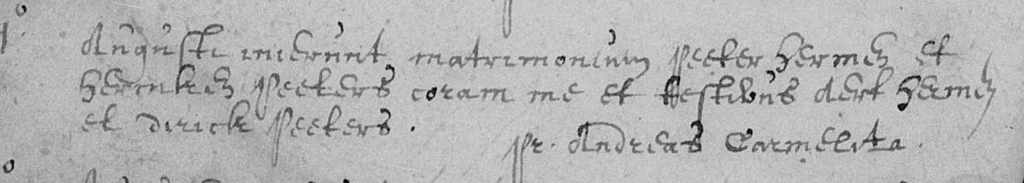 1o Augusti inierunt matrimonium Peeter Hermes et
Hermken Peeters coram me et testibus Aert Hermes
et Dirick Peeters.
pr. Andreas Carmelita.